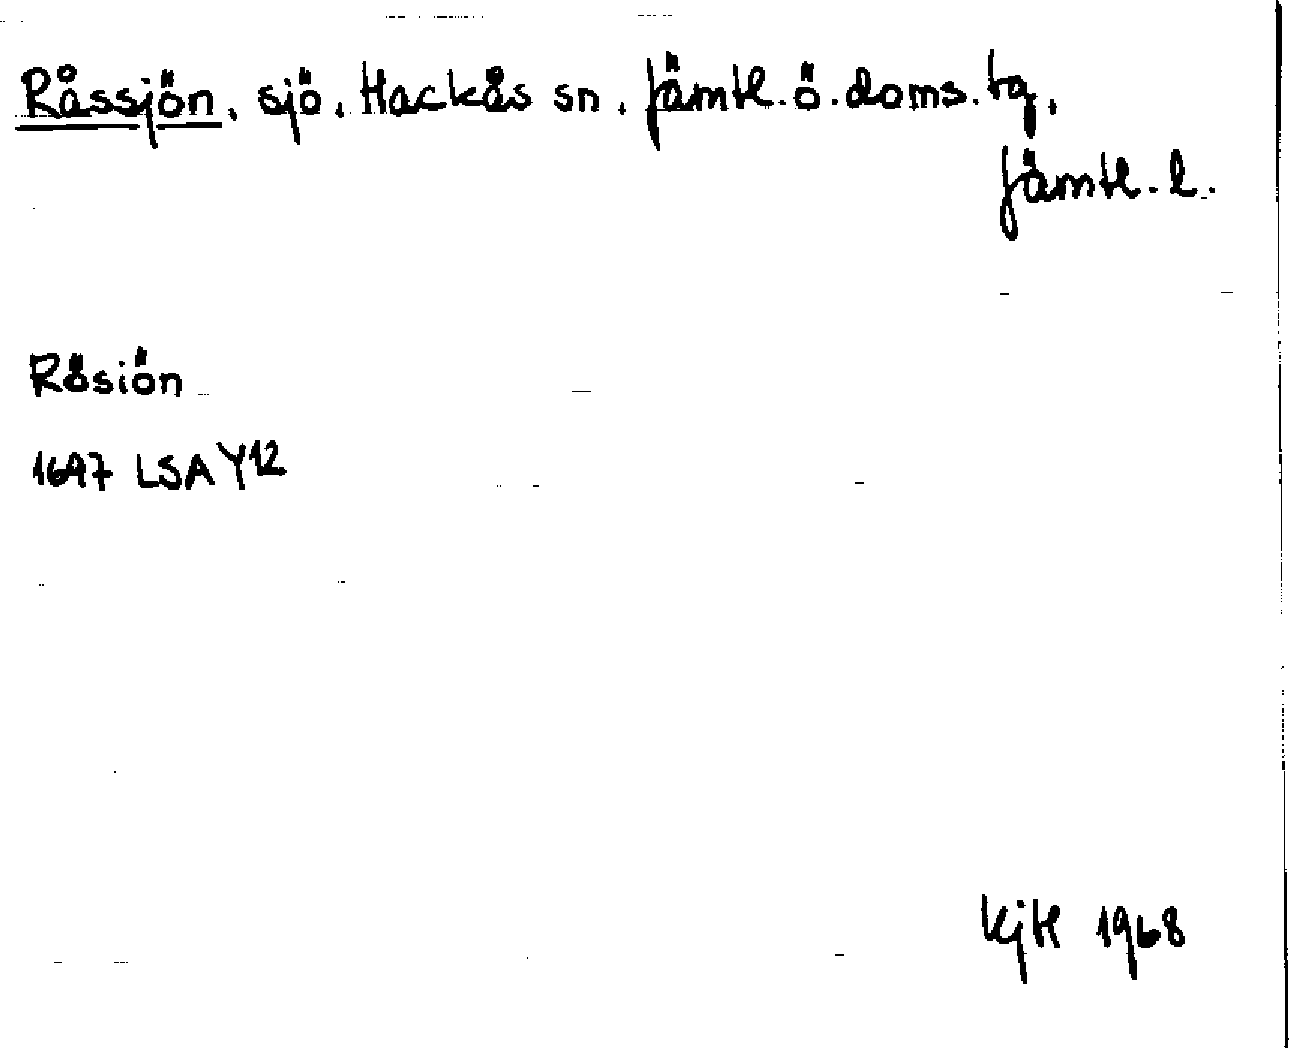 Råssjön, sjö, Hackås sn, Jämtl. ö. doms. tg,
Jämtl. l.
Rösiön
1697 LSA Y12
KjH 1968